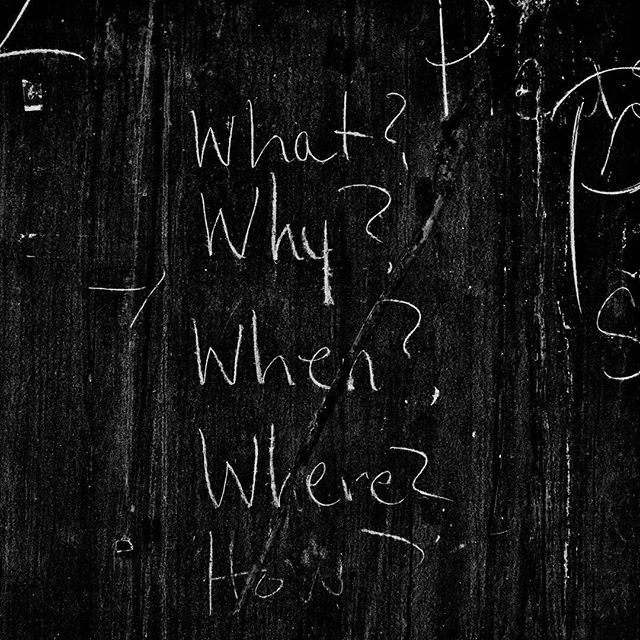 What?
Why?
When?
Where?
How